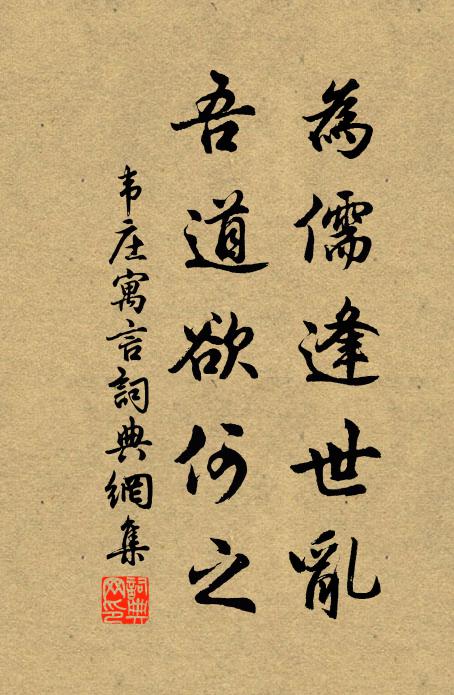 為儒逢世亂
吾道欲何之
韦庄寓言詞典網集
詞典網印